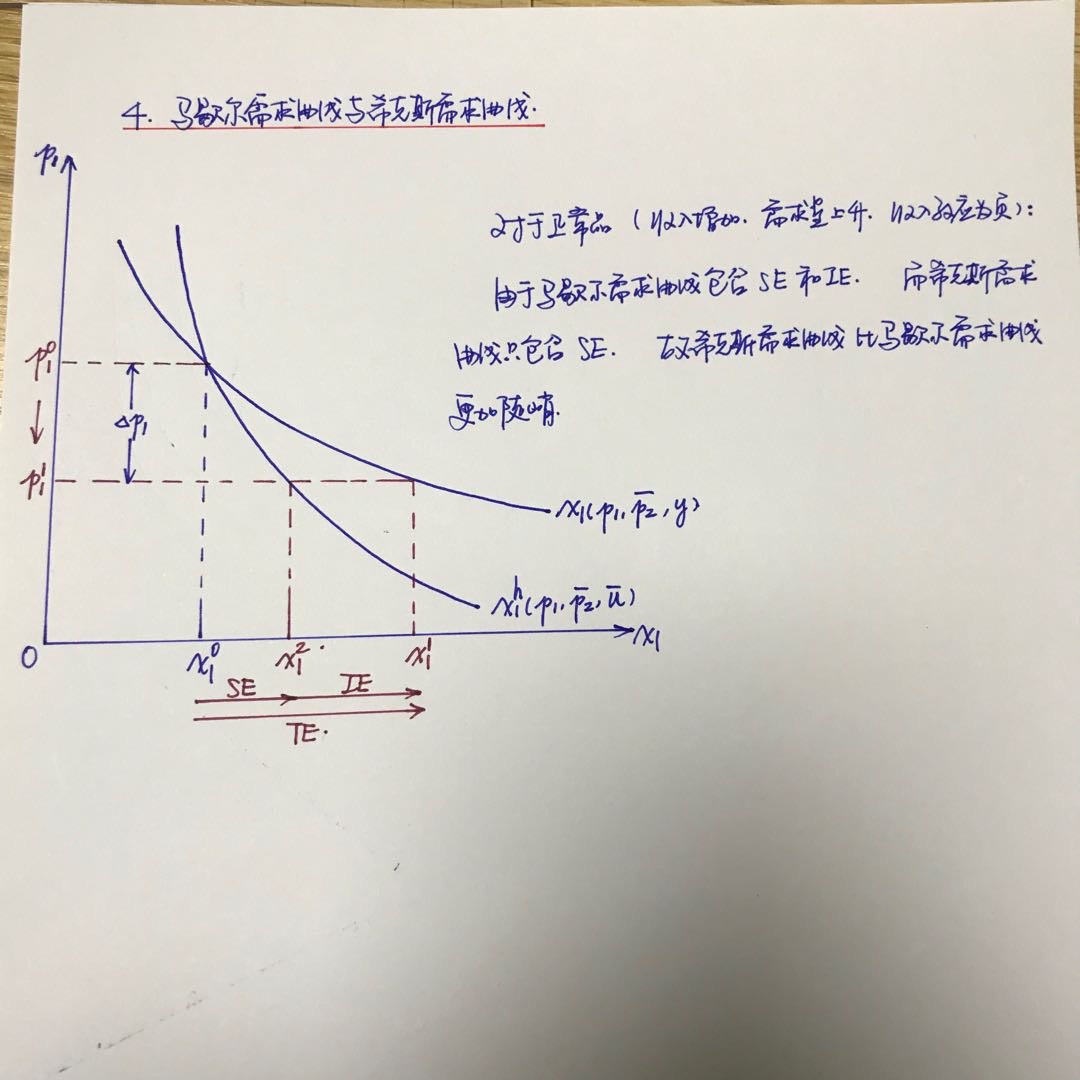 4. 马歇尔需求曲线与希克斯需求曲线.
p₁
对于正常品 (收入增加. 需求量上升. 收入效应为负):
由于马歇尔需求曲线包含 SE 和 IE. 而希克斯需求
曲线只包含 SE. 故希克斯需求曲线比马歇尔需求曲线
更加陡峭.
p₁⁰
Δp₁
p₁¹
x₁(p₁, p̅₂, y)
x₁ʰ(p₁, p̅₂, u̅)
O
x₁⁰
x₁²
x₁¹
x₁
SE
IE
TE.